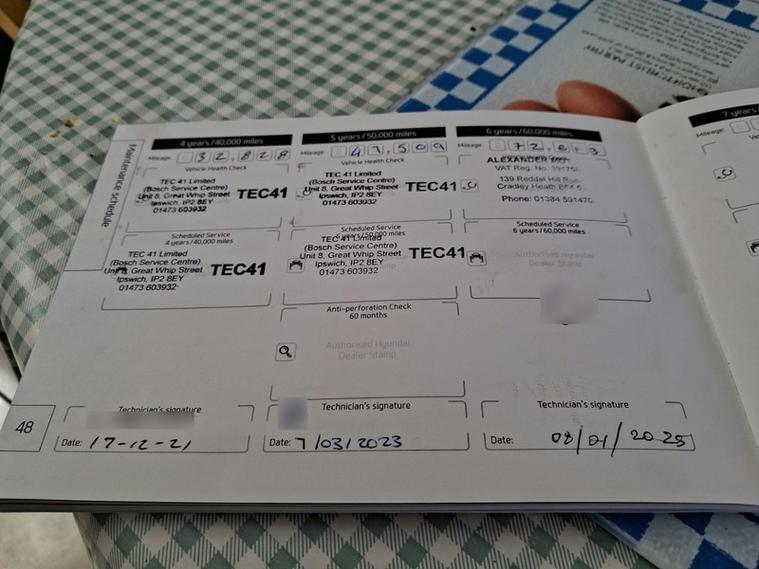 Maintenance schedule
4 years/40,000 miles
Mileage: 32,828
Vehicle Health Check
TEC 41 Limited
(Bosch Service Centre)
Unit 8, Great Whip Street
Ipswich, IP2 8EY
01473 603932
TEC41
Scheduled Service
4 years/40,000 miles
TEC 41 Limited
(Bosch Service Centre)
Unit 8, Great Whip Street
Ipswich, IP2 8EY
01473 603932
TEC41
Technician's signature
Date: 17-12-21
5 years/50,000 miles
Mileage: 47,509
Vehicle Health Check
TEC 41 Limited
(Bosch Service Centre)
Unit 8, Great Whip Street
Ipswich, IP2 8EY
01473 603932
TEC41
Scheduled Service
5 years/50,000 miles
TEC 41 Limited
(Bosch Service Centre)
Unit 8, Great Whip Street
Ipswich, IP2 8EY
01473 603932
TEC41
Anti-perforation Check
60 months
Authorised Hyundai
Dealer Stamp
Technician's signature
Date: 7/03/2023
6 years/60,000 miles
Mileage:
ALEXANDER
VAT Reg. No.
139 Reddal Hill
Cradley Heath
Phone: 01384
Scheduled Service
6 years/60,000 miles
Authorised Hyundai
Dealer Stamp
Technician's signature
Date: 08/01/2025
48
7 years
Mileage: